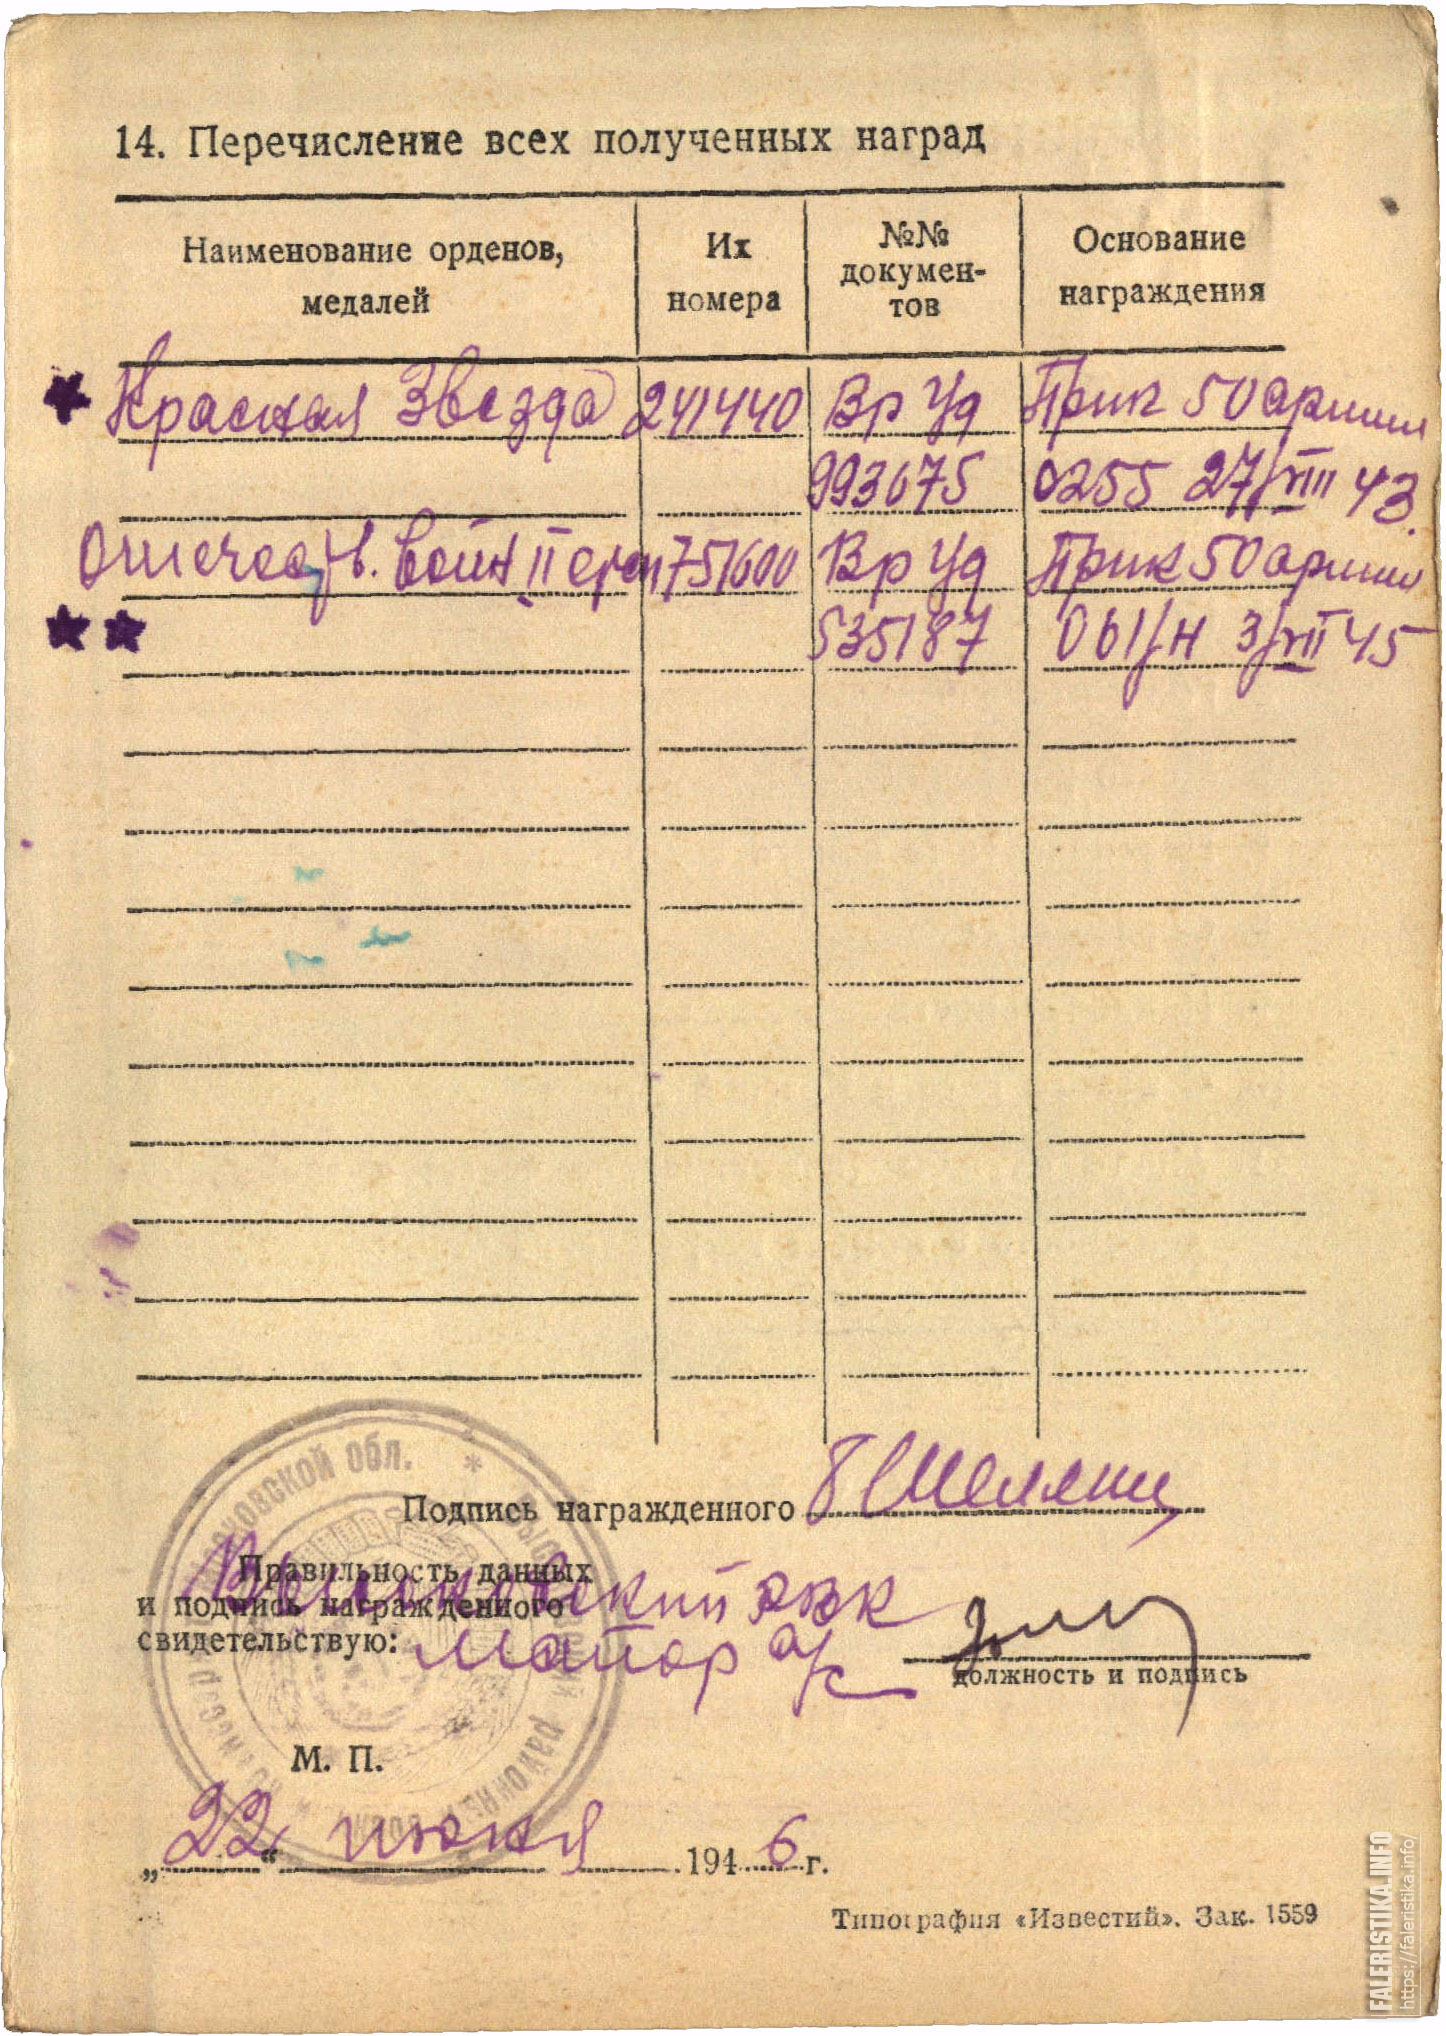 14. Перечисление всех полученных наград
Наименование орденов, медалей
Их номера
№№ документов
Основание награждения
Красная Звезда 241440 Вр Уд Прик 50 армии
993675 0255 27/VIII 43.
Отечеств. войн II степ 751600 Вр Уд Прик 50 армии
535187 061/н 3/VII 45
Подпись награжденного
Правильность данных
и подпись награжденного
свидетельствую:
Высоковский РВК
майор а/с
должность и подпись
М. П.
„22“ июня 1946 г.
Типография «Известий». Зак. 1559
Московской обл. *
FALERISTIKA.INFO
https://faleristika.info